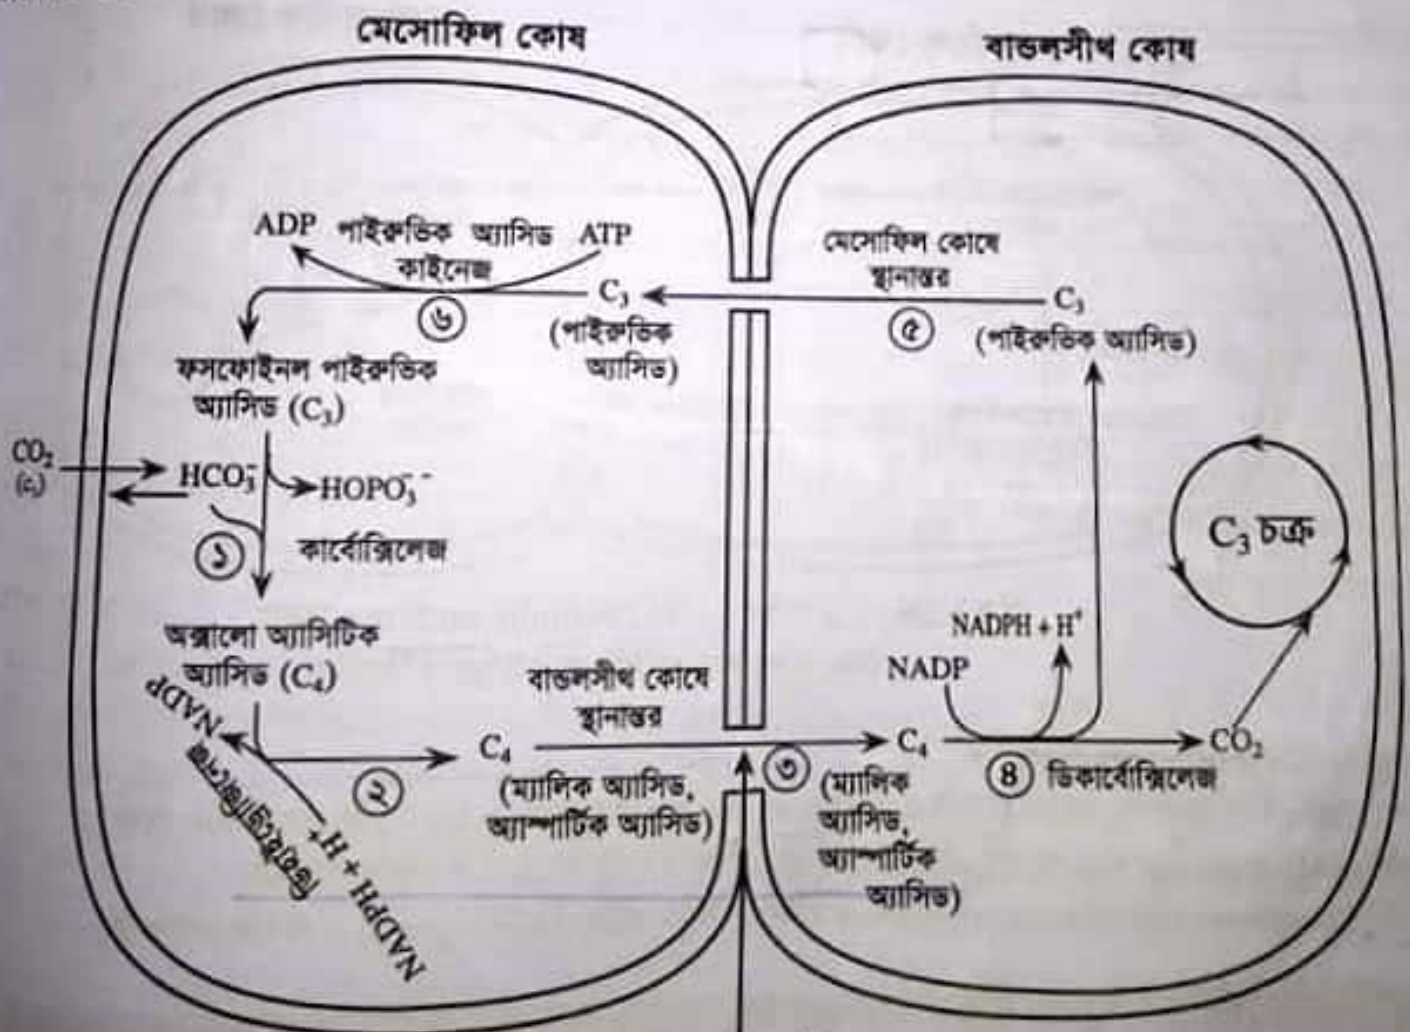 মেসোফিল কোষ
বান্ডলসীথ কোষ
ADP পাইরুভিক অ্যাসিড ATP
কাইনেজ
৬
C₃
(পাইরুভিক
অ্যাসিড)
মেসোফিল কোষে
স্থানান্তর
৫
C₃
(পাইরুভিক অ্যাসিড)
ফসফোইনল পাইরুভিক
অ্যাসিড (C₃)
CO₂
HCO₃⁻
HOPO₃⁻⁻
১
কার্বোক্সিলেজ
C₃ চক্র
অক্সালো অ্যাসিটিক
অ্যাসিড (C₄)
NADP
ডিহাইড্রোজিনেজ
NADPH + H⁺
২
C₄
(ম্যালিক অ্যাসিড,
অ্যাস্পার্টিক অ্যাসিড)
বান্ডলসীথ কোষে
স্থানান্তর
৩
C₄
(ম্যালিক
অ্যাসিড,
অ্যাস্পার্টিক
অ্যাসিড)
NADPH + H⁺
NADP
৪ ডিকার্বোক্সিলেজ
CO₂